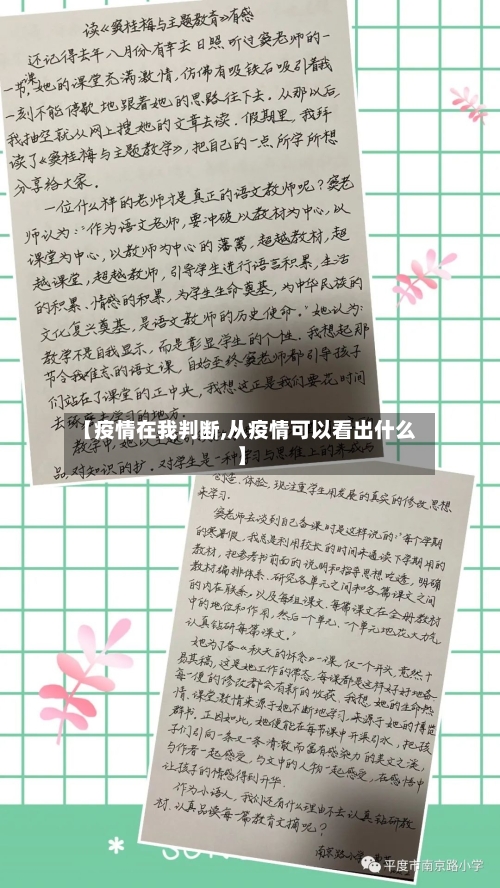 读《窦桂梅与主题教育》有感
还记得去年八月份有幸去日照听过窦老师的一
一节课,她的课堂充满激情,仿佛有吸铁石吸引着我
一刻不能停歇地跟着她的思路往下去。从那以后,
我抽空就从网上搜她的文章去读。假期里,我拜
读了《窦桂梅与主题教学》,把自己的一点所学所想
分享给大家。
一位什么样的老师才是真正的语文教师呢?窦老
师认为:“作为语文老师,要冲破以教材为中心,以
课堂为中心,以教师为中心的藩篱,超越教材,超
越课堂,超越教师,引导学生进行语言积累,生活
的积累、情感的积累,为学生生命奠基,为中华民族的
文化复兴奠基,是语文教师的历史使命。”她认为:
教学不是自我显示,而是彰显学生的个性。我想起那
节令我难忘的语文课,自始至终窦老师都引导孩子
们站在了课堂的正中央,我想这正是我们要花时间
去 学习的地方。
教学中,她
【疫情在我判断,从疫情可以看出什么
】
品,对知识的扩。对学生是一种学习与思维上的
创造、体验,现注重学生用发展的真实的修改思想
来学习。
窦老师去谈到自己备课时是这样说的:“每个学期
的寒暑假,我总是利用较长的时间来通读下学期用的
教材,把参考书前面的说明和指导思想吃透,明确
教材编排体系,研究各单元之间和各篇课文之间
的内在联系,以及每组课文、每篇课文在全册教材
中的地位和作用,然后一个单元、一个单元地花大力气
认真钻研每篇课文。”
她为了备《秋天的怀念》一课,仅一个开头,竟然十
易其稿,这是她工作的常态,每课都是这样好好地备
每一遍的修改都会有新的收获。我想,她的生命热
情,课堂激情来源于她不断地学习,来源于她的博览
群书。正因如此,她便能在每节课中开渠引水,把孩
子们引向一条又一条清澈而富有感染力的美文之流,
与作者一起感受,与文中的人物一起感受,在感悟中
让孩子的情感得到升华。
作为小语人,我们还有什么理由不去认真钻研教
材,认真品读每一篇教育文摘呢?
南京路小学
平度市南京路小学